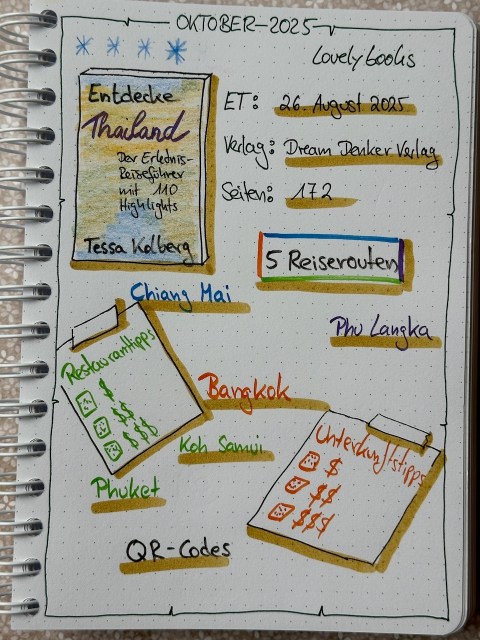 OKTOBER-2025
Lovelybooks
Entdecke
Thailand
Der Erlebnis-
Reiseführer
mit 110
Highlights
Tessa Kolberg
ET: 26. August 2025
Verlag: Dream Denker Verlag
Seiten: 172
5 Reiserouten
Chiang Mai
Phu Langka
Restauranttipps
$
$$
$$$
Bangkok
Koh Samui
Unterkunftstipps
$
$$
$$$
Phuket
QR-Codes